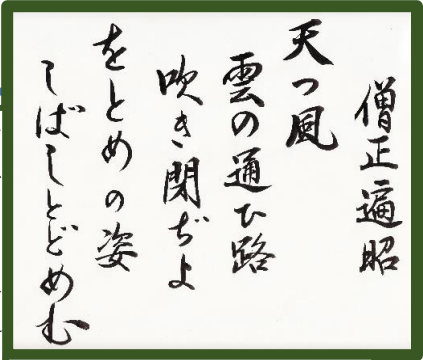 僧正遍昭
天つ風
雲の通ひ路
吹き閉ぢよ
をとめの姿
しばしとどめむ